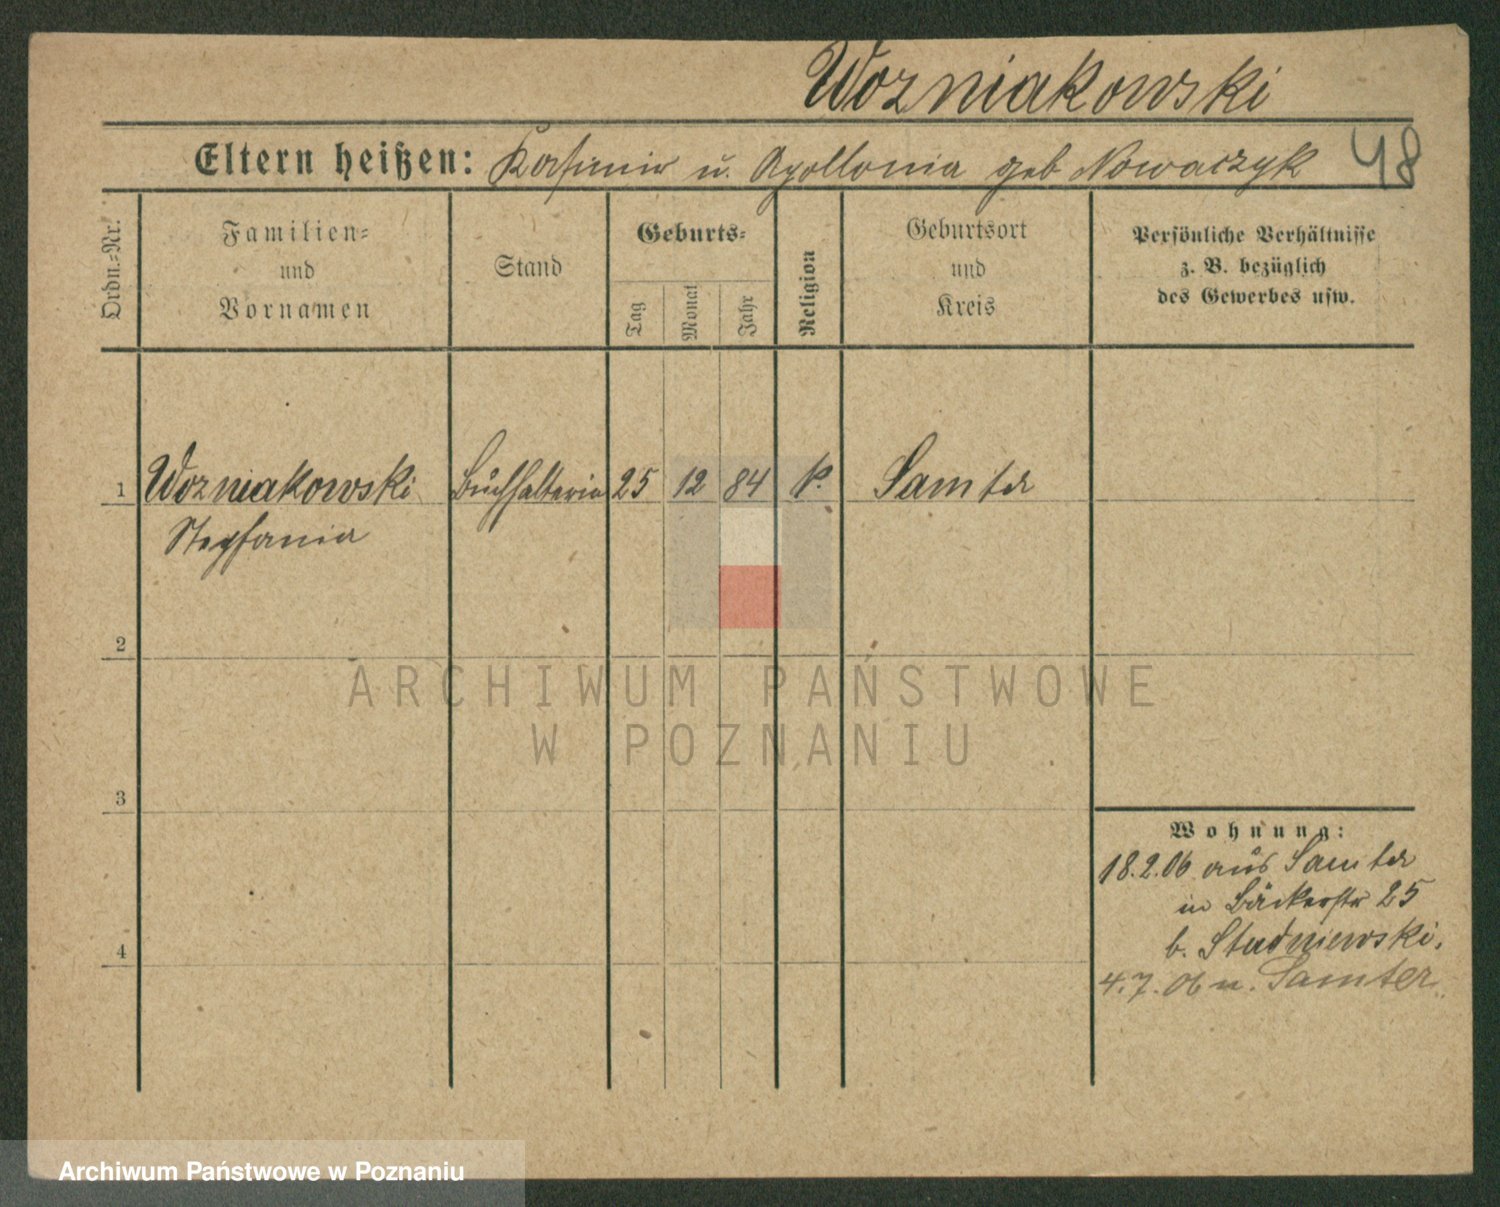 Wozniakowski
Eltern heißen: Kasimir u. Apollonia geb Nowaczyk 48
Ordn.-Nr.
Familien-
und
Vornamen
Stand
Geburts-
Tag
Monat
Jahr
Religion
Geburtsort
und
Kreis
Persönliche Verhältnisse
z. B. bezüglich
des Gewerbes usw.
1 Wozniakowski Buchhalterin 25 12 84 k. Samter
Stephania
2
ARCHIWUM PAŃSTWOWE
W POZNANIU
3
Wohnung:
18.2.06 aus Samter
in Bäckerstr 25
b. Studniewski.
4
4.7.06 n. Samter.
Archiwum Państwowe w Poznaniu